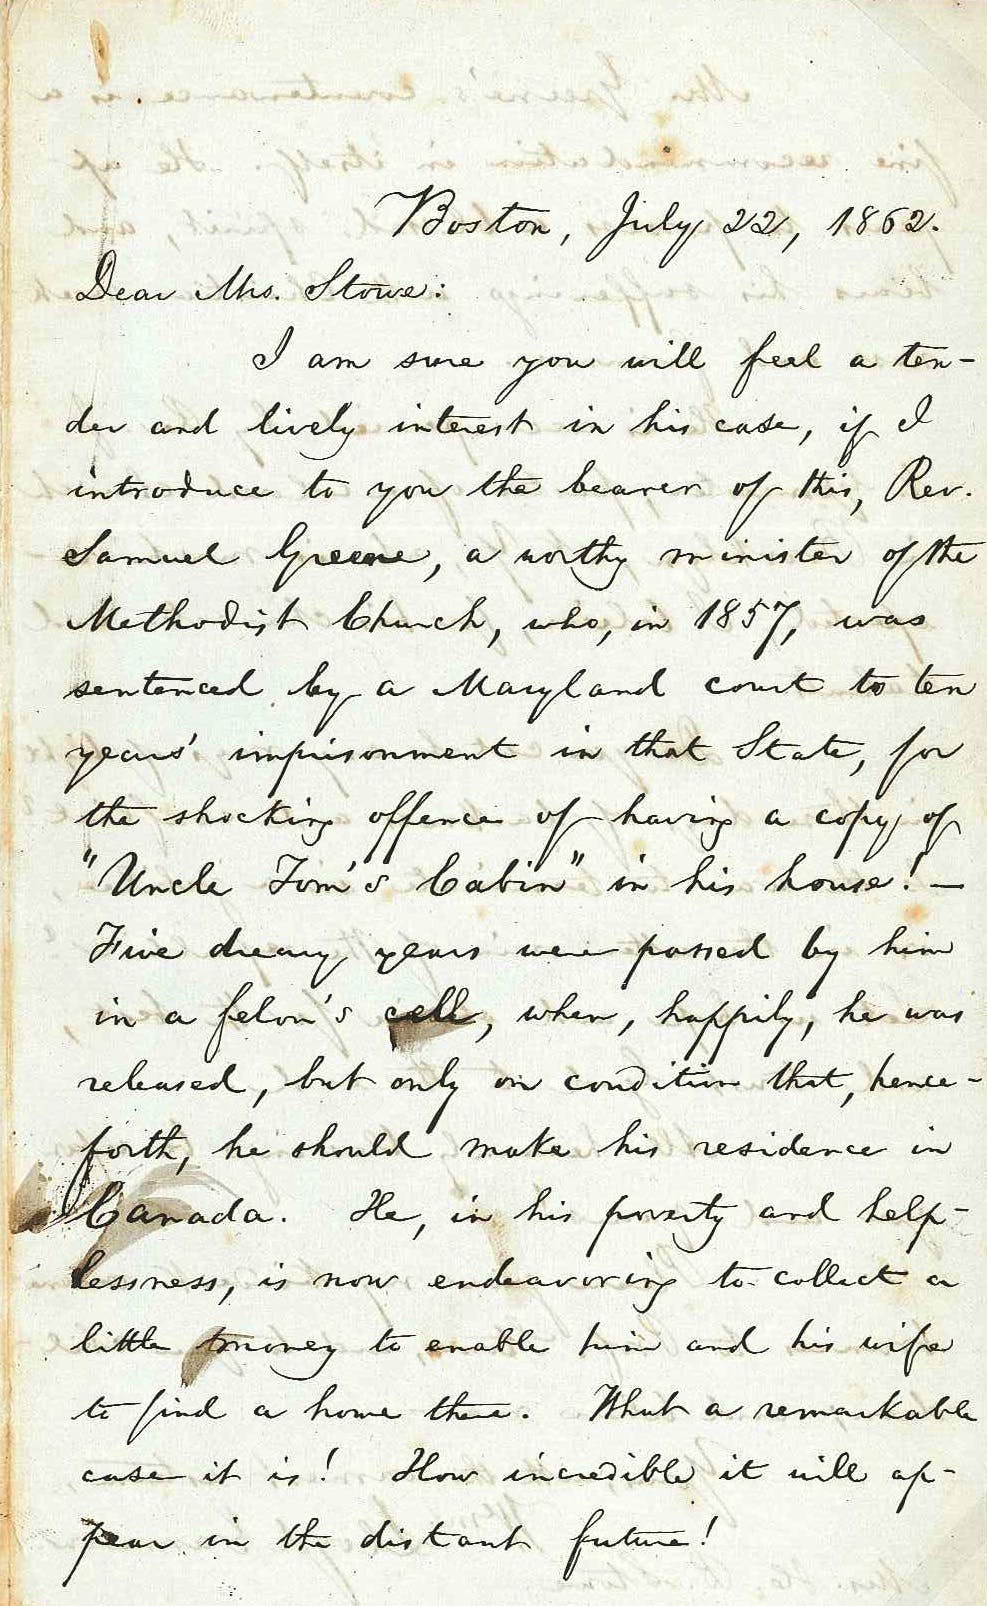 Boston, July 22, 1862.
Dear Mrs. Stowe:
I am sure you will feel a ten-
der and lively interest in his case, if I
introduce to you the bearer of this, Rev.
Samuel Greene, a worthy minister of the
Methodist Church, who, in 1857, was
sentenced by a Maryland court to ten
years' imprisonment in that State, for
the shocking offence of having a copy of
"Uncle Tom's Cabin" in his house! —
Five dreary years were passed by him
in a felon's cell, when, happily, he was
released, but only on condition that, hence-
forth, he should make his residence in
Canada. He, in his poverty and help-
lessness, is now endeavoring to collect a
little money to enable him and his wife
to find a home there. What a remarkable
case it is! How incredible it will ap-
pear in the distant future!